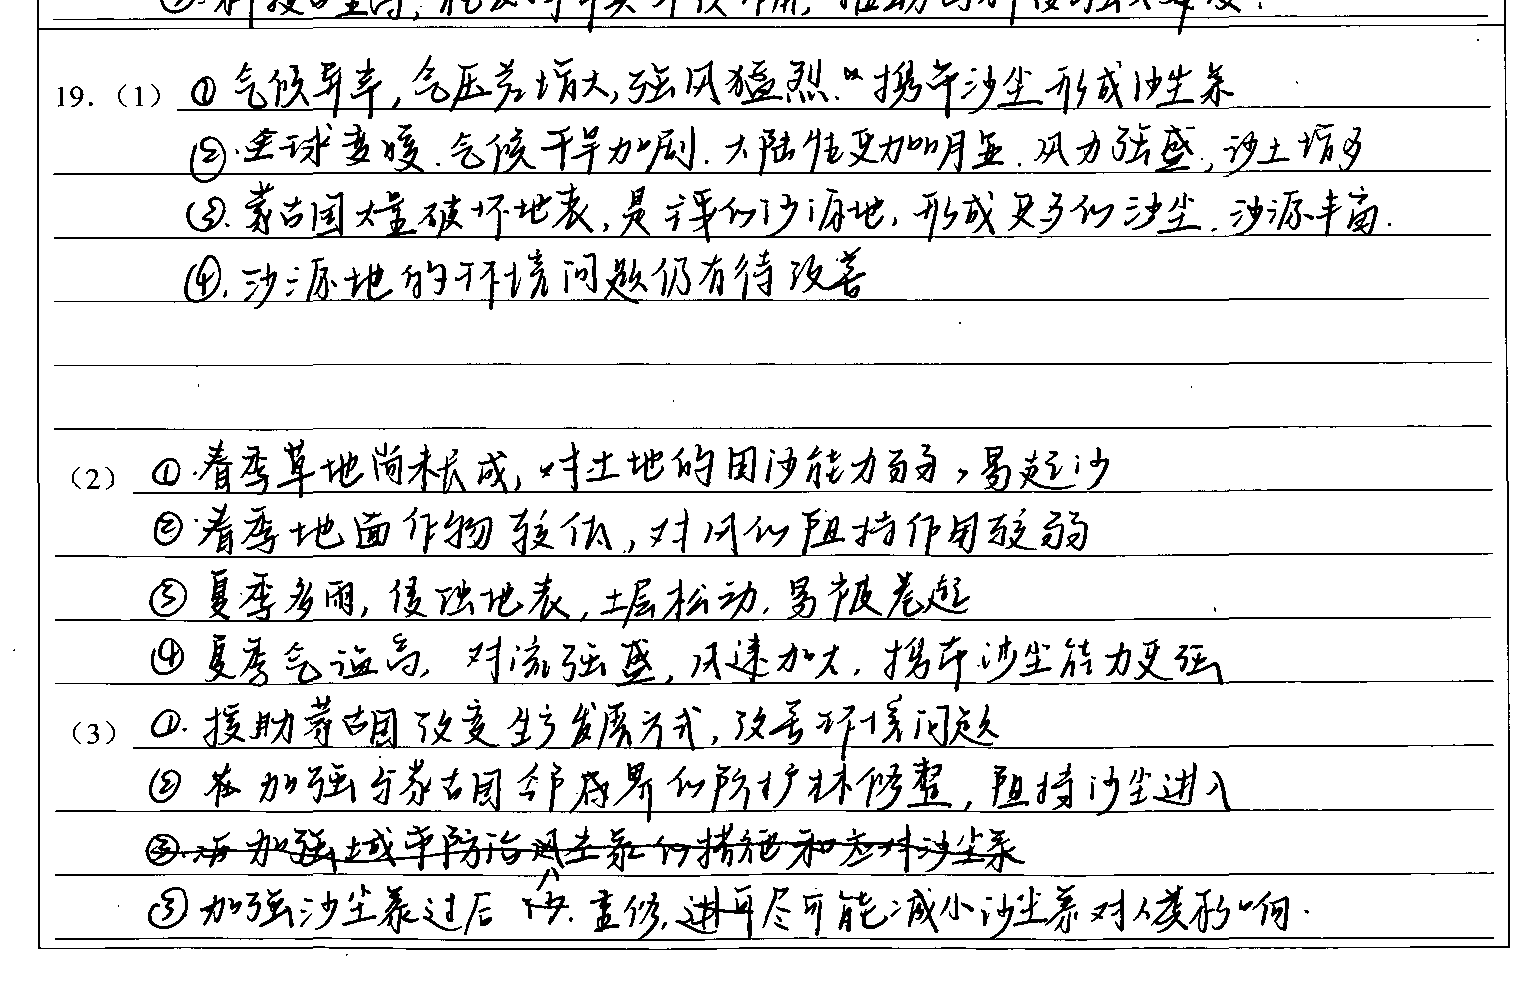 19.（1）①气候异常,气压差增大,强风猛烈.携带沙尘形成沙尘暴
②.全球变暖.气候干旱加剧.大陆性更加明显.风力强盛,沙土增多
③.蒙古国大量破坏地表,是主要的沙源地,形成更多的沙尘.沙源丰富.
④.沙源地的环境问题仍有待改善
（2）①.春季草地尚未长成,对土地的固沙能力弱,易起沙
②.春季地面作物较低,对风的阻挡作用较弱
③夏季多雨,侵蚀地表,土层松动.易被卷起
④夏季气温高,对流强盛,风速加大.携带沙尘能力更强
（3）①.援助蒙古国改变生产发展方式,改善环境问题
②在加强与蒙古国边界的防护林修整,阻挡沙尘进入
③加强沙尘暴过后重修,尽可能减小沙尘暴对人类影响.